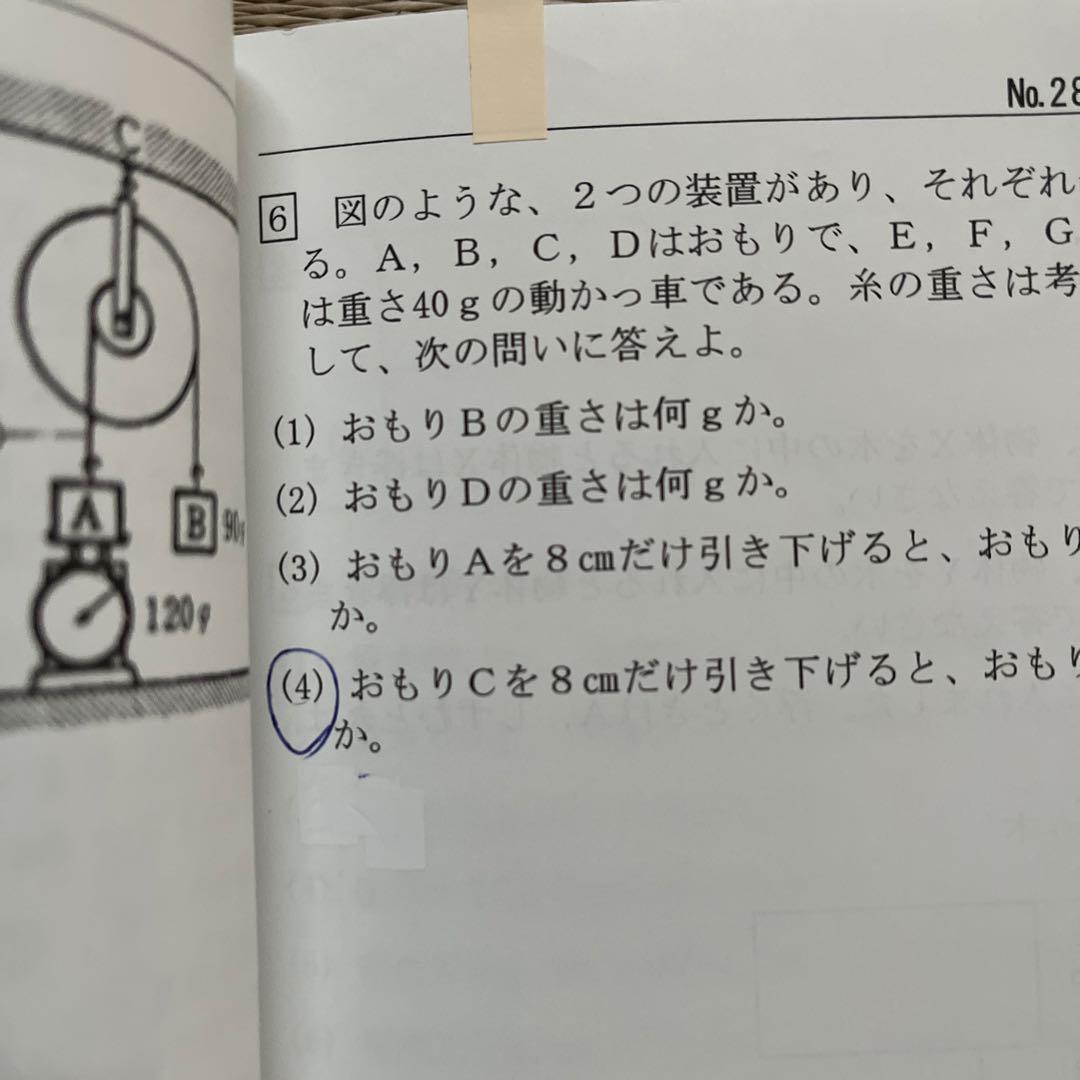 C
A
B
90g
120g
No.28
6 図のような、２つの装置があり、それぞれ
る。A，B，C，Dはおもりで、E，F，G
は重さ40gの動かっ車である。糸の重さは考
して、次の問いに答えよ。
(1) おもりBの重さは何gか。
(2) おもりDの重さは何gか。
(3) おもりAを8cmだけ引き下げると、おもり
か。
(4) おもりCを8cmだけ引き下げると、おもり
か。